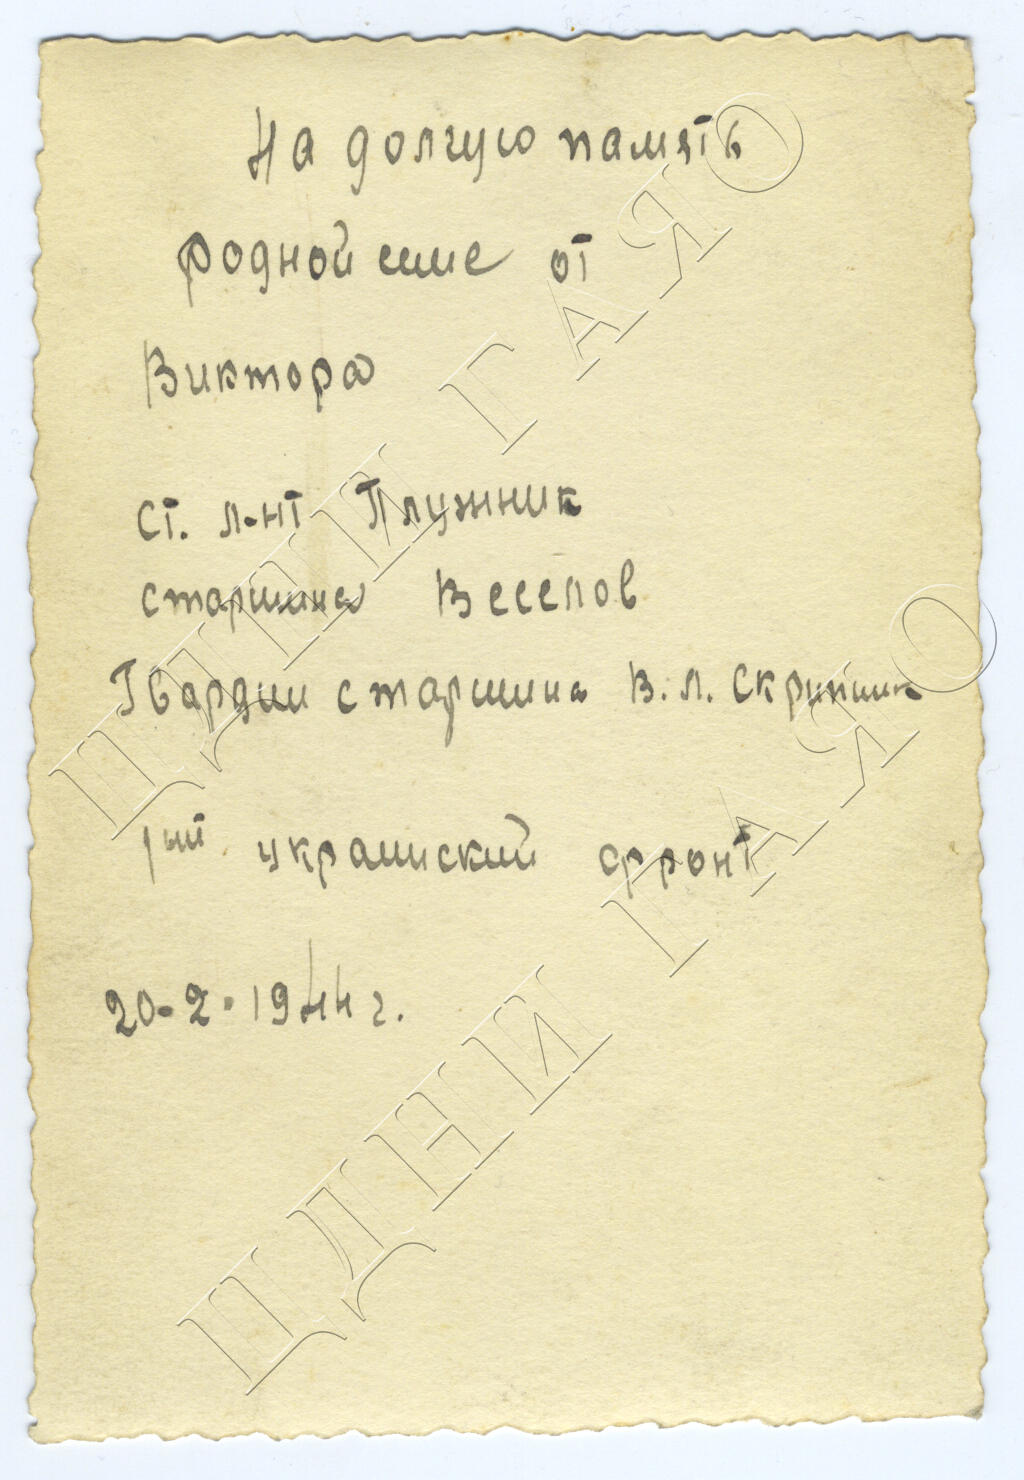 На долгую память
родной от
Виктора
ст. л-нт Плужник
старшина Веселов
Гвардии старшина В. Л. Скрипник
1ый украинский фронт
20-2-1944 г.
ЦДНИ ГАЯО
ЦДНИ ГАЯО